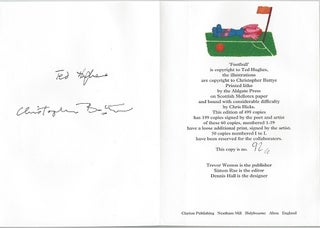 Ted Hughes
Christopher Battye
'Football'
is copyright to Ted Hughes,
the illustrations
are copyright to Christopher Battye
Printed litho
by the Abigate Press
on Scottish Mellotex paper
and bound with considerable difficulty
by Chris Hicks.
This edition of 495 copies
has 199 copies signed by the poet and artist
of these 60 copies, numbered 1-59
have a loose additional print, signed by the artist.
50 copies numbered I to L
have been reserved for the collaborators.
This copy is no.
Trevor Weston is the publisher
Simon Rae is the editor
Dennis Hall is the designer
Clarion Publishing Neatham Mill Holybourne Alton England